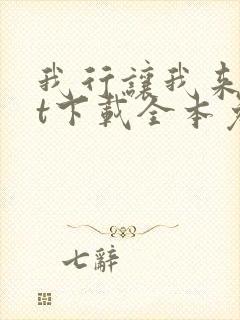 我行讓我来
t下載全本
七辭